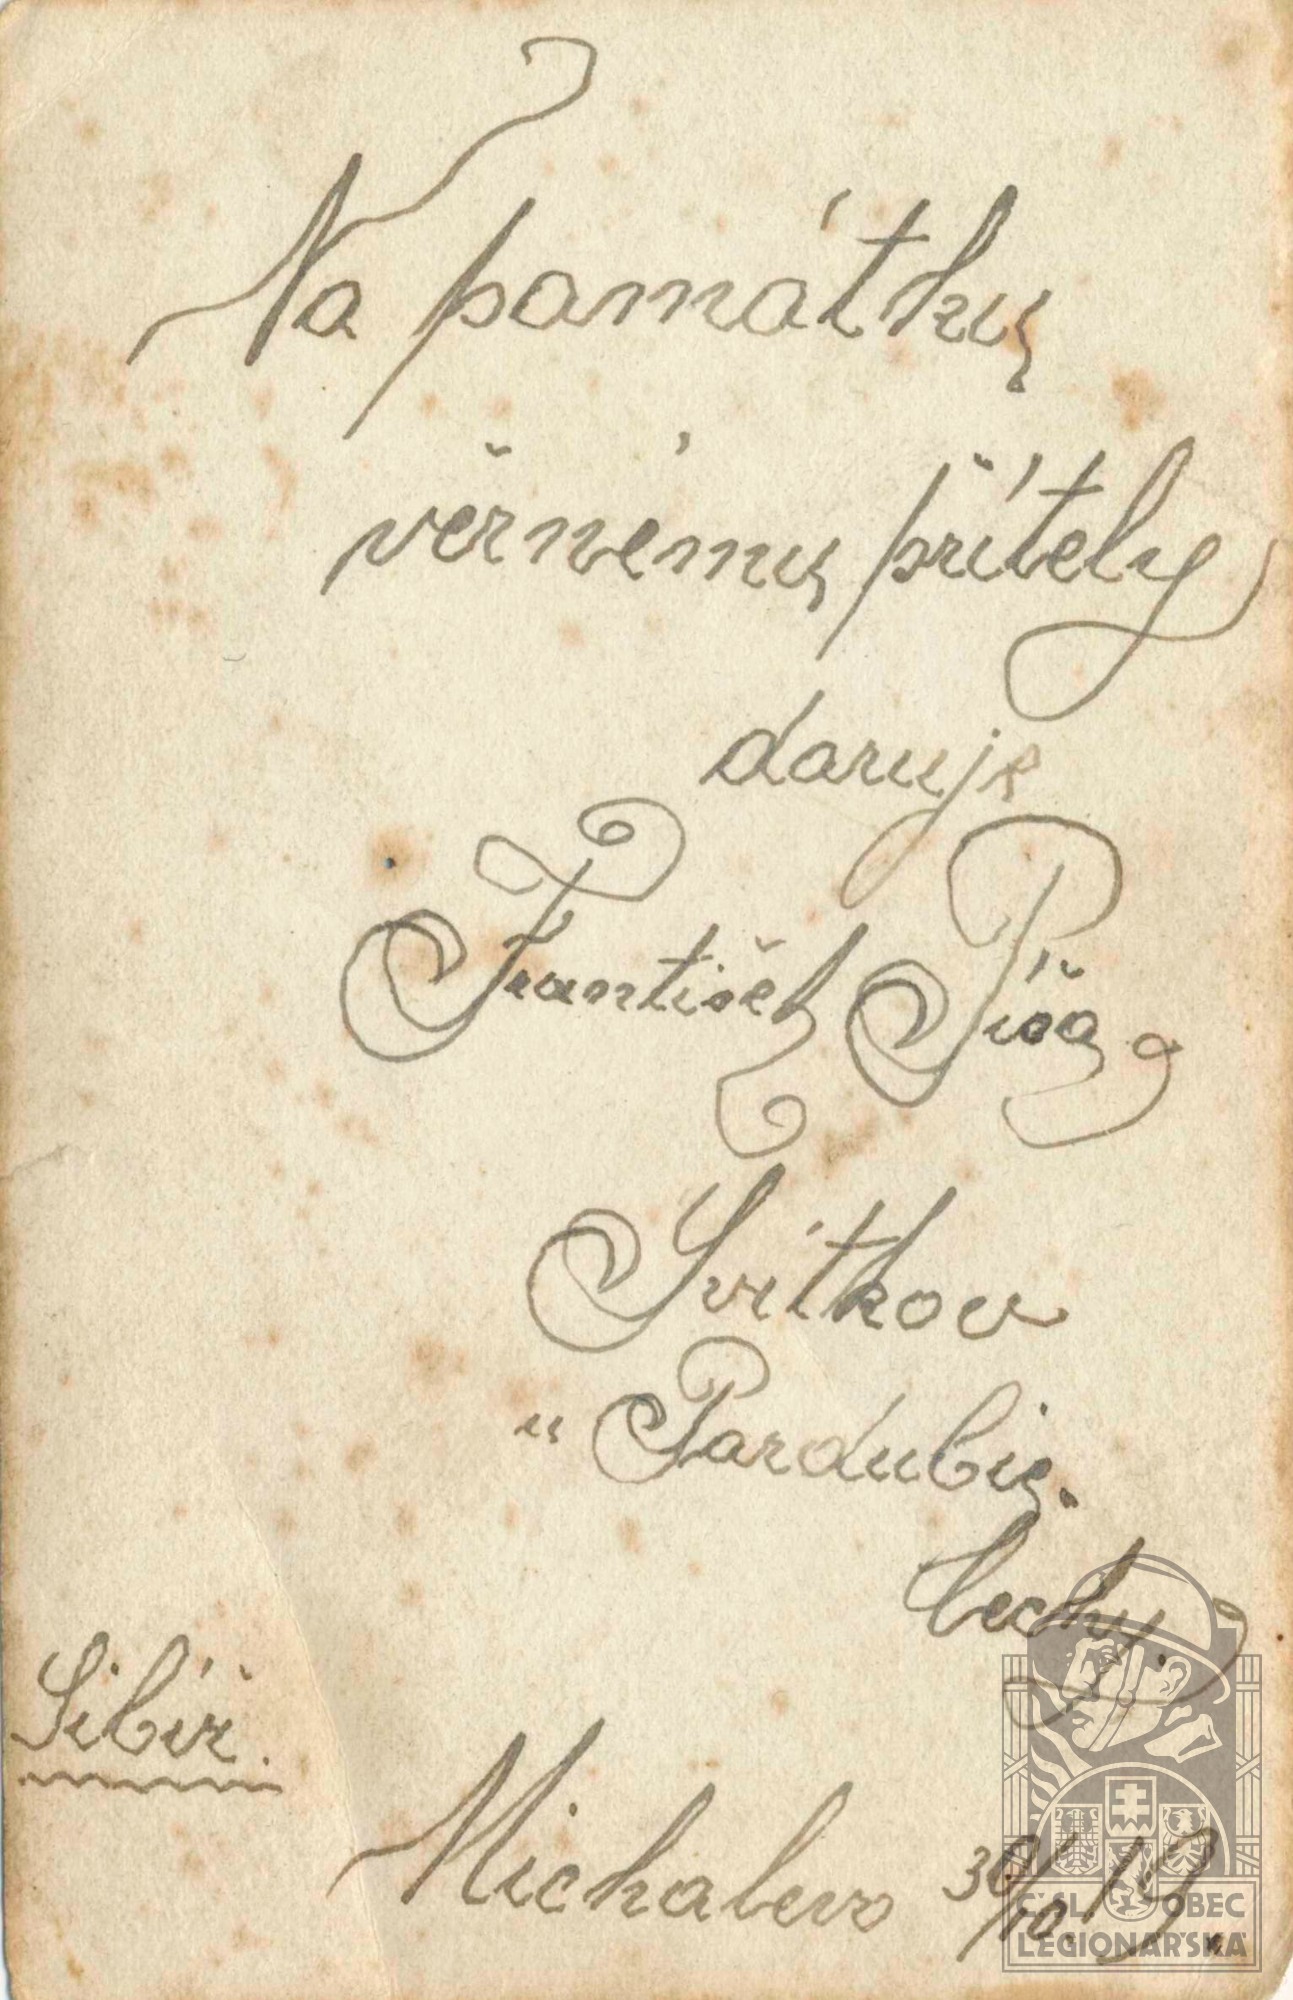 Na památku
věrnému přítely
daruje
František Píša
Svítkov
u Pardubic.
Čechy.
Sibíř.
Michalevo 30/10. 19.
ČSL. OBEC
LEGIONÁŘSKÁ